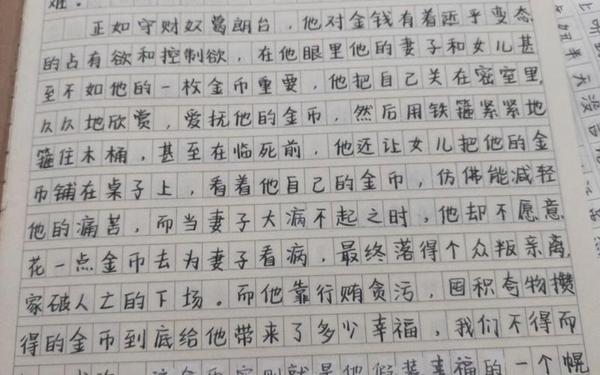 难。
正如守财奴葛朗台，他对金钱有着近乎变态
的占有欲和控制欲，在他眼里他的妻子和女儿甚
至不如他的一枚金币重要，他把自己关在密室里，
久久地欣赏，爱抚他的金币，然后用铁箍紧紧地
箍住木桶，甚至在临死前，他还让女儿把他的金
币铺在桌子上，看着他自己的金币，仿佛能减轻
他的痛苦，而当妻子大病不起之时，他却不愿意
花一点金币去为妻子看病，最终落得个众叛亲离，
家破人亡的下场。而他靠行贿贪污，囤积夸物攒
得的金币到底给他带来了多少幸福，我们不得而
就是他假装幸福的一个幌